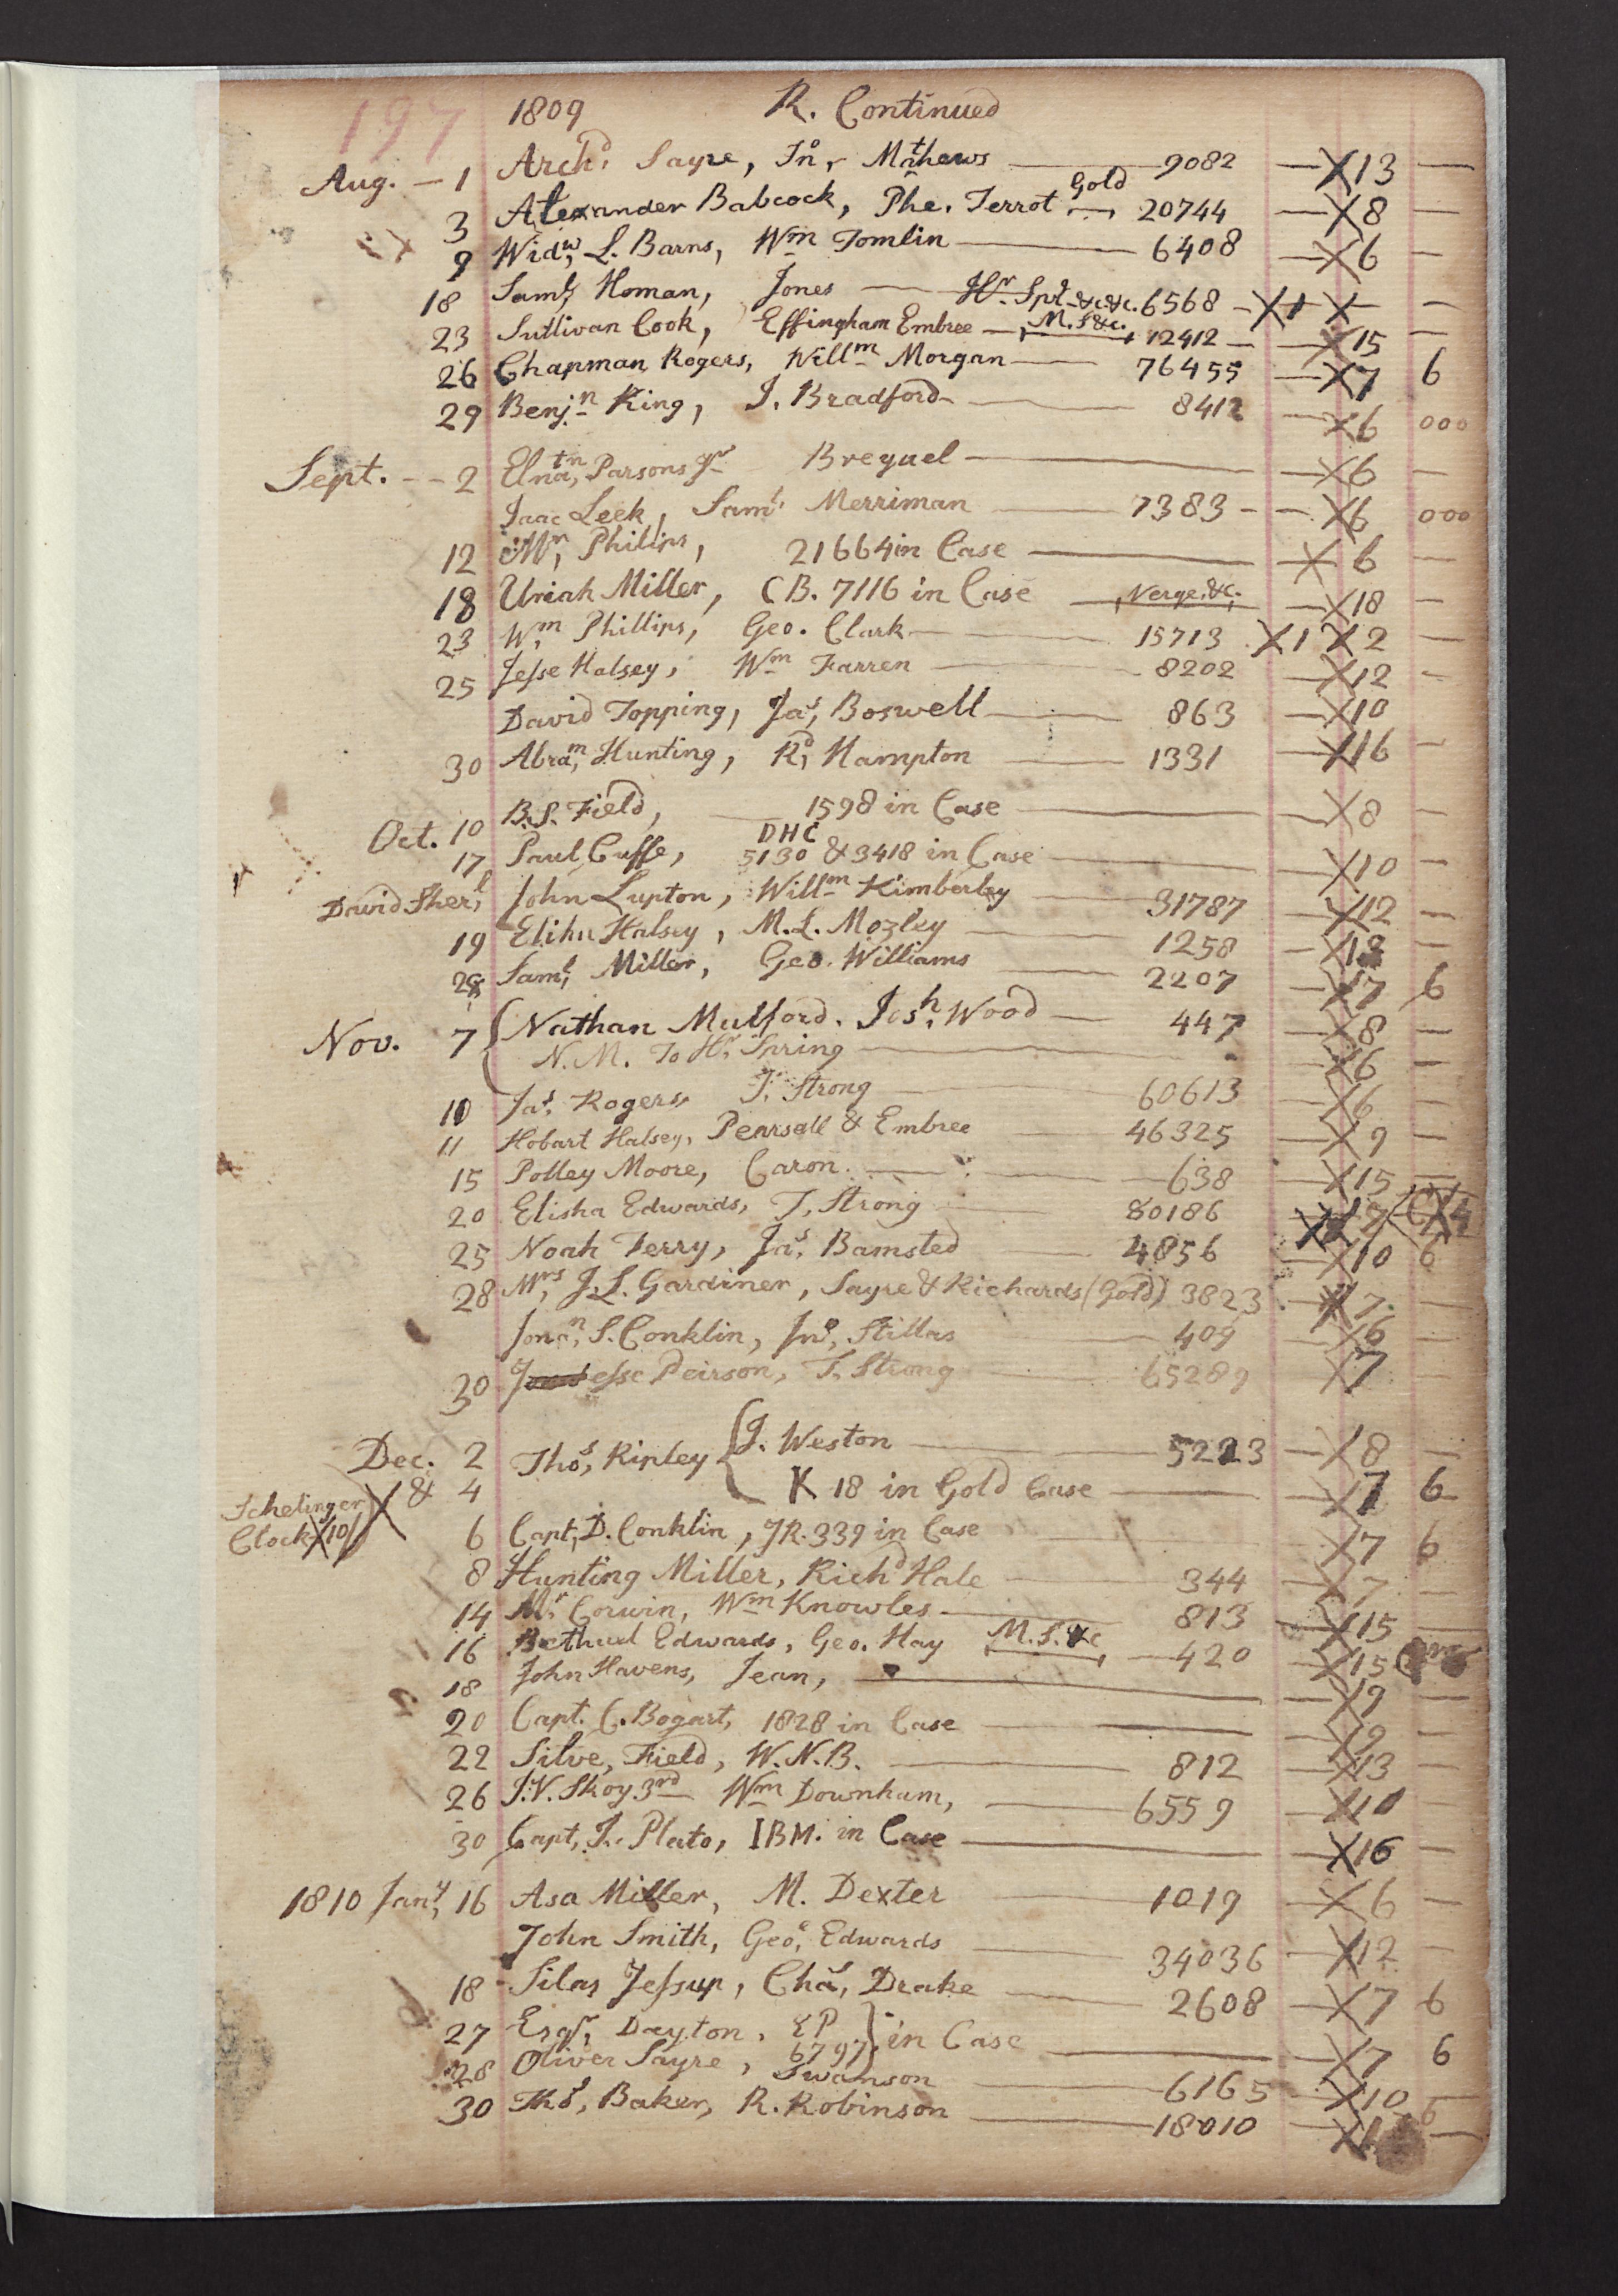 197 1809 R. Continued
Aug. — 1 Archd. Sayre, Jno, Mathews — 9082 — X 13 —
3 Alexander Babcock, Phe. Terrot Gold — 20744 — X 8 —
9 Widw, L. Barns, Wm Tomlin — 6408 — X 6 —
18 Saml, Homan, Jones — Hr. Spg &c. &c. 6568 — X 1 X — —
23 Sullivan Cook, Effingham Embree — M. S &c. 12412 — X 15 —
26 Chapman Rogers, Willm Morgan — 76455 — X 7 6
29 Benjn King, J. Bradford — 8412 — X 6 000
Sept. — 2 Elnatn, Parsons Jr Breguel — X 6 —
Isaac Leek, Saml. Merriman — 7383 — X 6 000
12 Philips, 21664 in Case — X 6 —
18 Uriah Miller, CB. 7116 in Case — Verge, &c. — X 18 —
23 Wm, Phillips, Geo. Clark — 15713 X 1 X 2 —
25 Jesse Halsey, Wm Farren — 8202 — X 12 —
David Topping, Jas, Boswell — 863 — X 10
30 Abram, Hunting, Rd, Hampton — 1331 — X 16 —
Oct. 10 B.S. Field, 1598 in Case — X 8 —
17 Paul Cuffe, DHC 5130 & 3418 in Case — X 10 —
David Sherl, John Lupton, Willm Kimberley — 31787 — X 12 —
19 Elihu Halsey, M.L. Mozley — 1258 — X —
28 Saml, Miller, Geo. Williams — 2207 — X 7 6
Nov. 7 { Nathan Mulford. Josh, Wood — 447 — X 8 —
N. M. To Hr, Spring — X 6 —
10 Jas, Rogers, T. Strong — 60613 — X 6 —
11 Hobart Halsey, Pearsall & Embree — 46325 — X 9 —
15 Polley Moore, Caron. — 638 — X 15 —
20 Elisha Edwards, T, Strong — 80186 X 7
25 Noah Terry, Jas, Bamsted — 4856 — X 10 6
28 Mrs, J.L. Gardiner, Sayre & Richards (Gold) 3823 — X 7. —
Jonan, S. Conklin, Jno, Stillas — 409 — X 6 —
30 Jesse Peirson, T. Strong — 65289 X 7 —
Dec. 2 Thos, Ripley { J. Weston — 5223 — X 8 —
& 4 K 18 in Gold Case — X 7 6
Schelinger X
Clock X 10/
6 Capt, D. Conklin, JR. 339 in Case — X 7 6
8 Hunting Miller, Richd Hale — 344 — X 7 —
14 Mr, Corwin, Wm Knowles — 813 — X 15 —
16 Bethuel Edwards, Geo. Hay M. S. &c — 420 — X 15
18 John Havens, Jean, — X 9 —
20 Capt. C. Bogart, 1828 in Case — X 9 —
22 Silve, Field, W. N. B. — 812 — X 13 —
26 J.V. Skoy. 3rd Wm Downham, — 6559 — X 10 —
30 Capt, I. Plato, IBM. in Case — X 16 —
1810 Jany, 16 Asa Miller, M. Dexter — 1019 — X 6 —
John Smith, Geoe, Edwards — 34036 — X 12 —
18 Silas Jessup, Chas, Drake — 2608 — X 7 6
27 Esqr, Dayton, EP 6797 } in Case — X 7 6
28 Oliver Sayre, Swanson — 6165 — X 10 —
30 Thos, Baker, R. Robinson — 18010 — X —